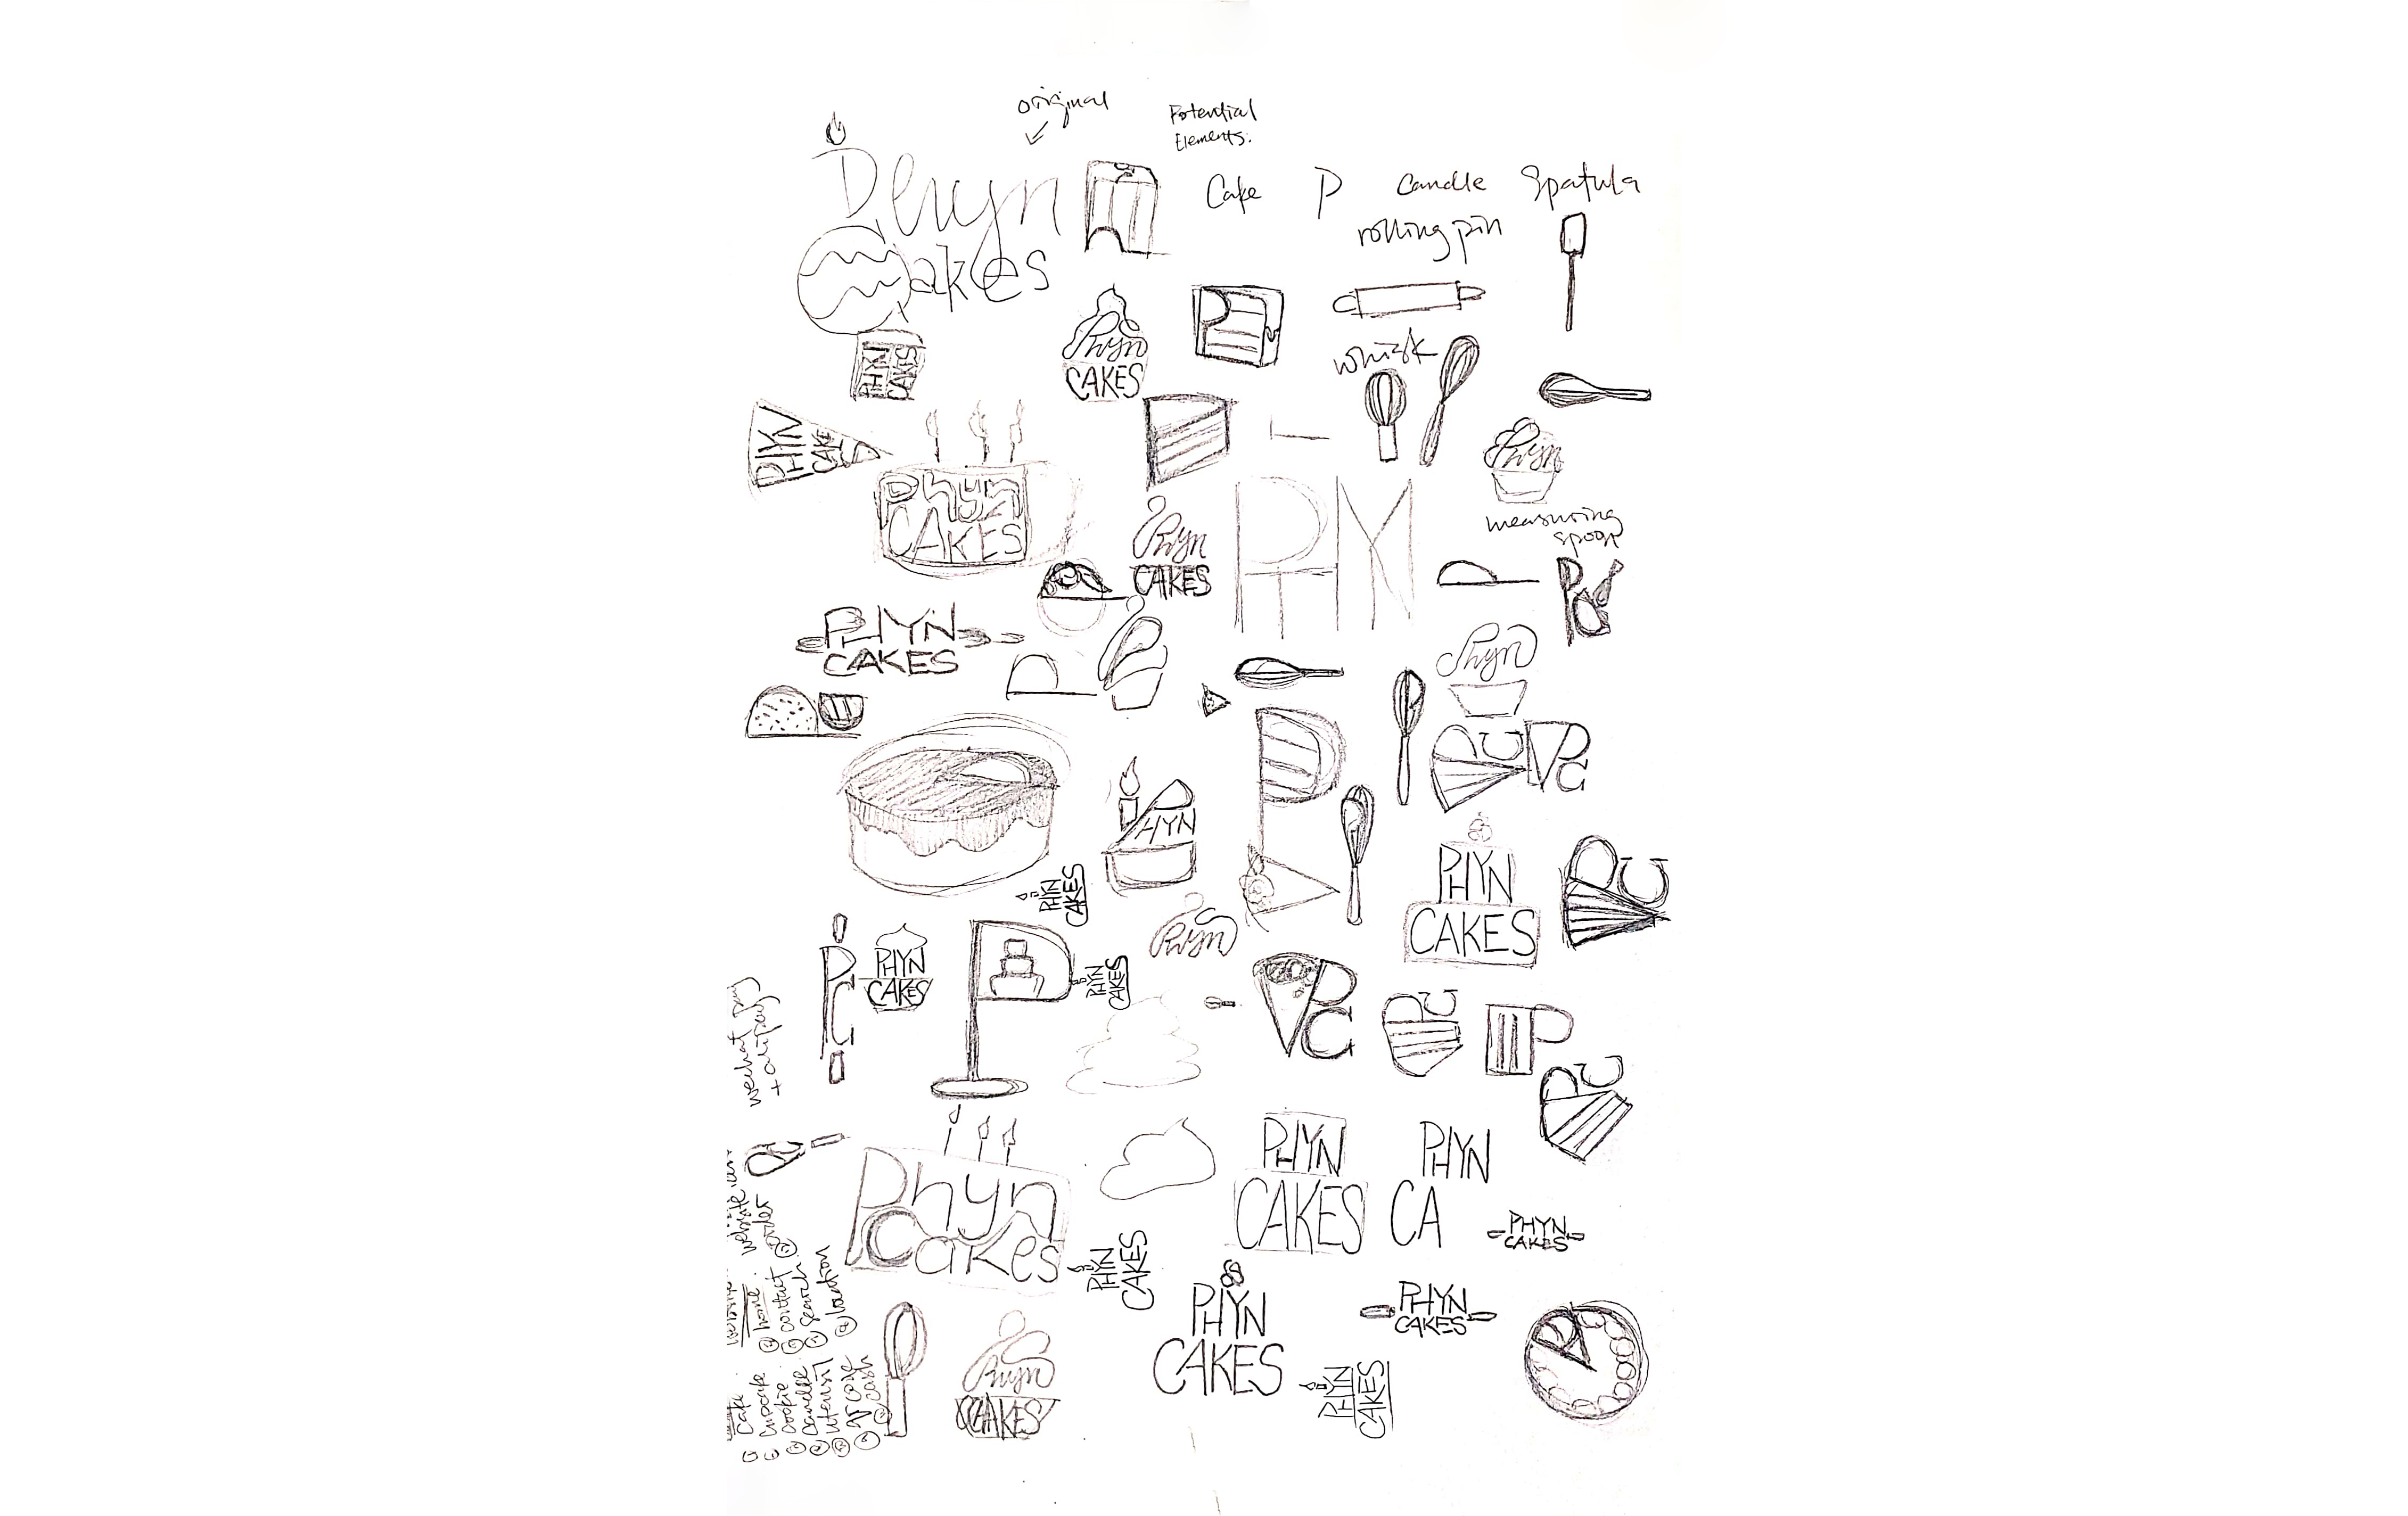 original
Potential
Elements:
Cake P Candle Spatula
rolling pin
Akes
whisk
Phyn
CAKES
PHYN
CAKES
PHYN
CAKE
Phyn
CAKES
Phyn
measuring
spoon
Phyn
CAKES
PHYN
CAKES
P
Phyn
PC
PC
P
HYN
PHYN
CAKES
PHYN
CAKES
PC
PHYN
CAKES
PC
P
PHYN
CAKES
Phyn
PC
PC
P
PC
wechat pay
+ alipay
Phyn
Cakes
PHYN
CAKES
PHYN
CA
PHYN
CAKES
PHYN
CAKES
PHYN
CAKES
PHYN
CAKES
Phyn
CAKES
PHYN
CAKES
website
order
home
contact
search
location
cake
cupcake
cookie
candle
utensil
QR code
cash